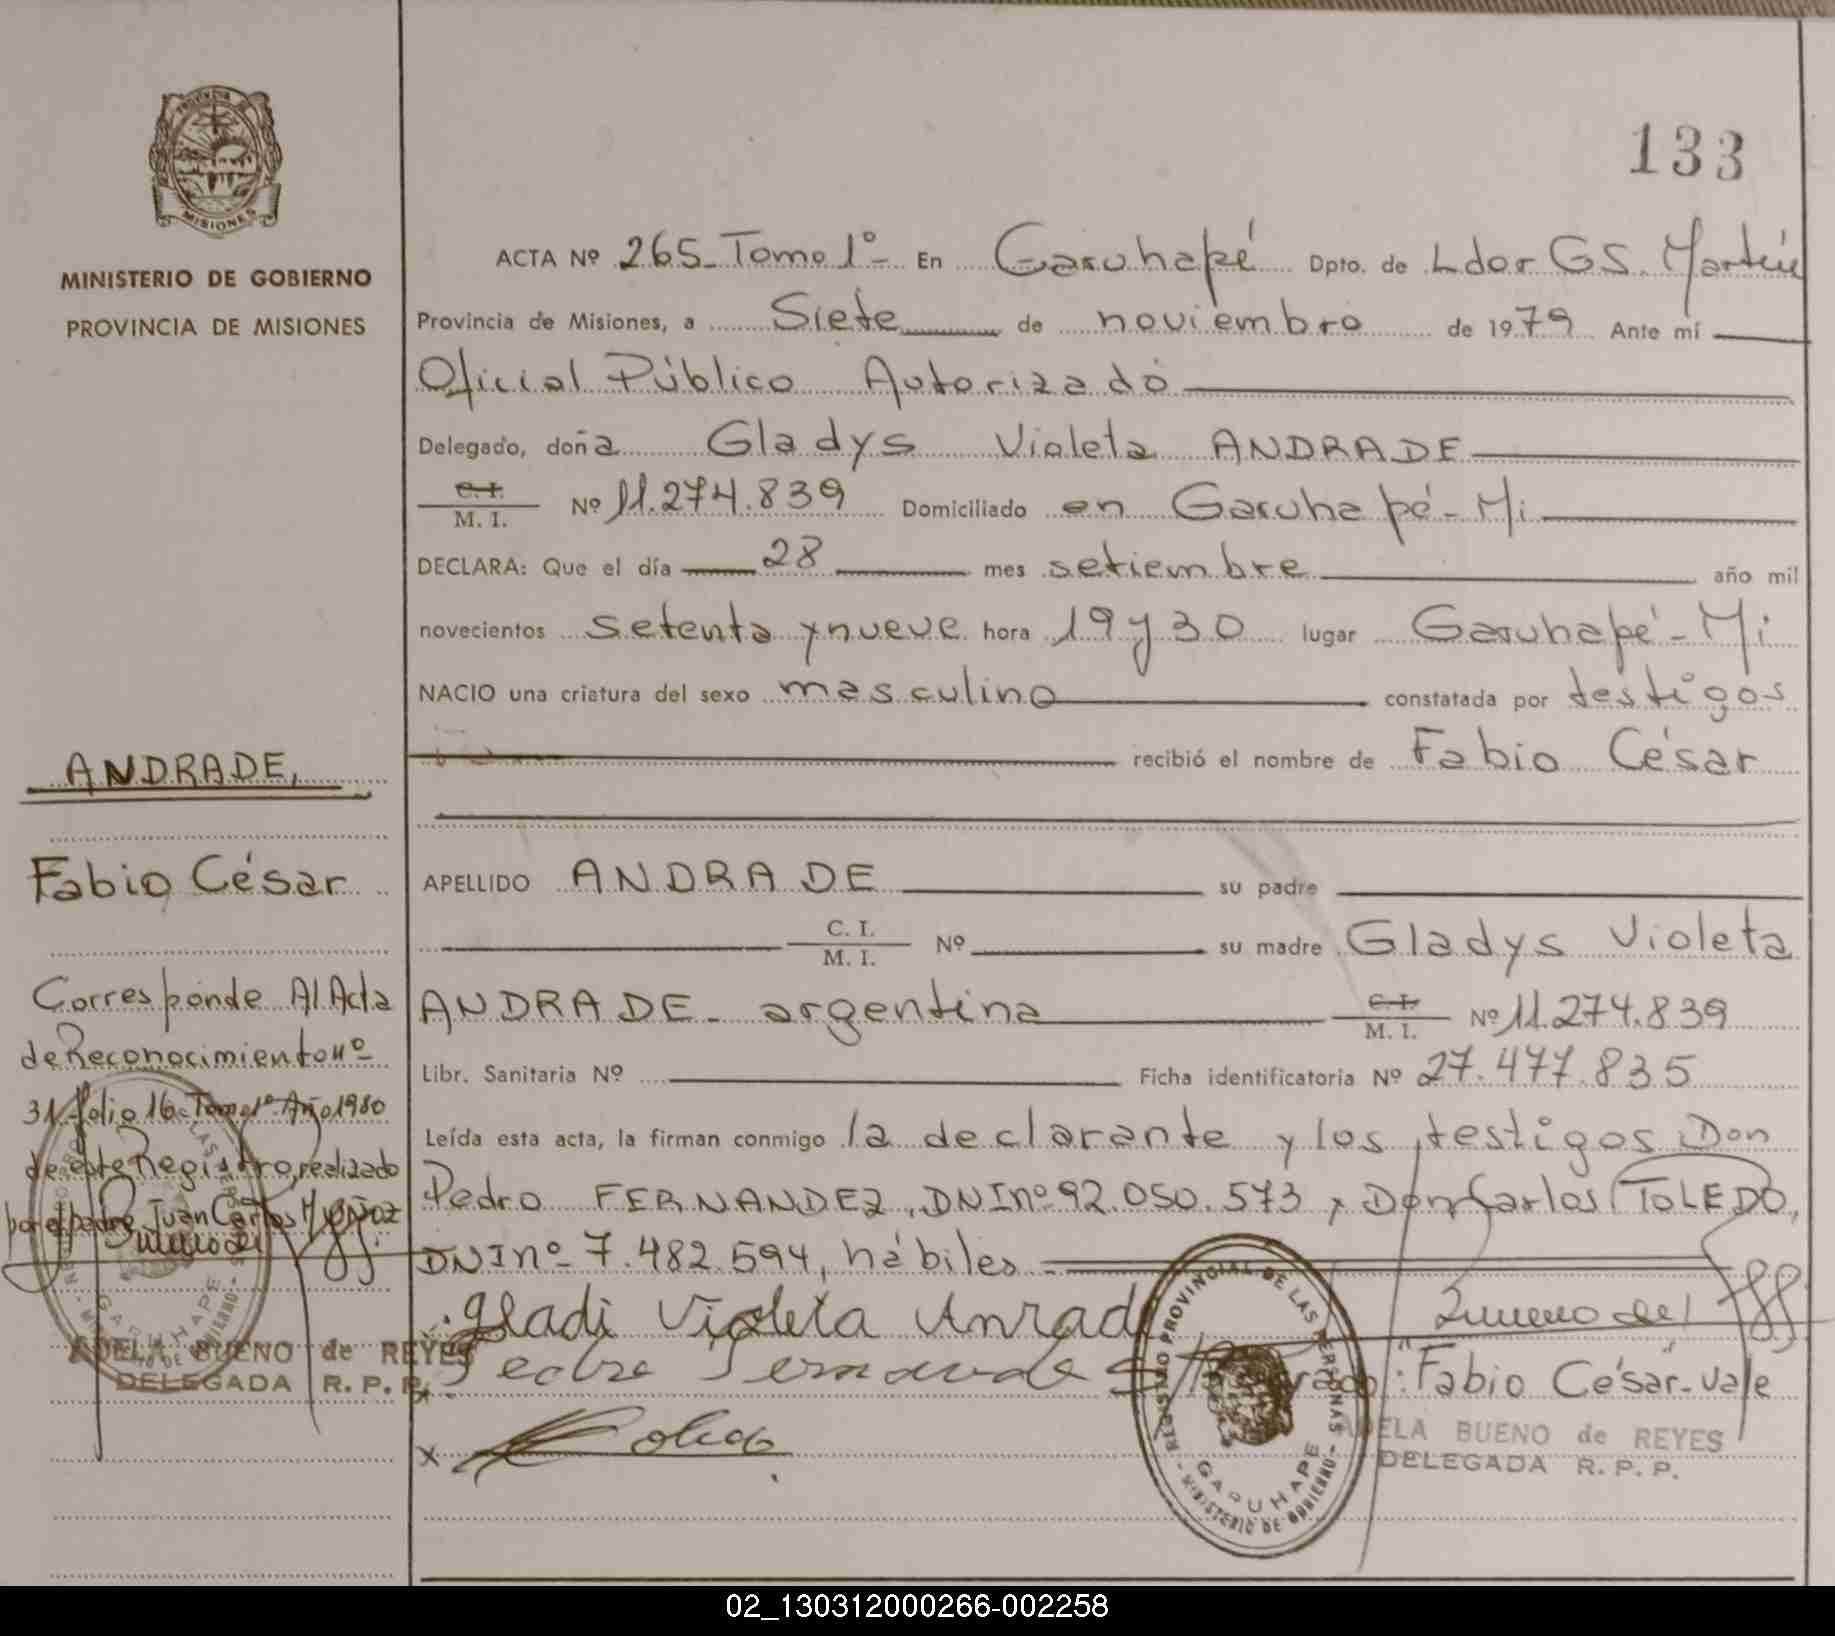 133
MINISTERIO DE GOBIERNO
PROVINCIA DE MISIONES
MISIONES
ACTA Nº 265_Tomo 1º_ En Garuhapé Dpto. de Ldor GS. Martín
Provincia de Misiones, a Siete de noviembre de 1979 Ante mí
Oficial Público Autorizado
Delegado, doña Gladys Violeta ANDRADE
C. I.
M. I. Nº 11.274.839 Domiciliado en Garuhapé-Mi
DECLARA: Que el día 28 mes setiembre año mil
novecientos setenta y nueve hora 19 y 30 lugar Garuhapé-Mi
NACIO una criatura del sexo masculino constatada por testigos
recibió el nombre de Fabio César
APELLIDO ANDRADE su padre
C. I.
M. I. Nº su madre Gladys Violeta
ANDRADE_ argentina C. I.
M. I. Nº 11.274.839
Libr. Sanitaria Nº Ficha identificatoria Nº 27.477.835
Leída esta acta, la firman conmigo la declarante y los testigos Don
Pedro FERNANDEZ, DNI nº 92.050.573 y Don Carlos TOLEDO,
DNI nº 7.482.594, hábiles
Gladi Violeta Anrad
"Fabio César"_Vale
ADELA BUENO de REYES
DELEGADA R. P. P.
REGISTRO PROVINCIAL DE LAS PERSONAS
GARUHAPE
MINISTERIO DE GOBIERNO
ANDRADE,
Fabio César
Corresponde Al Acta
de Reconocimiento nº
31 folio 16 Tomo 1º Año 1980
de este Registro, realizado
por el padre Juan Carlos Muñoz
ADELA BUENO de REYES
DELEGADA R. P. P.
02_130312000266-002258